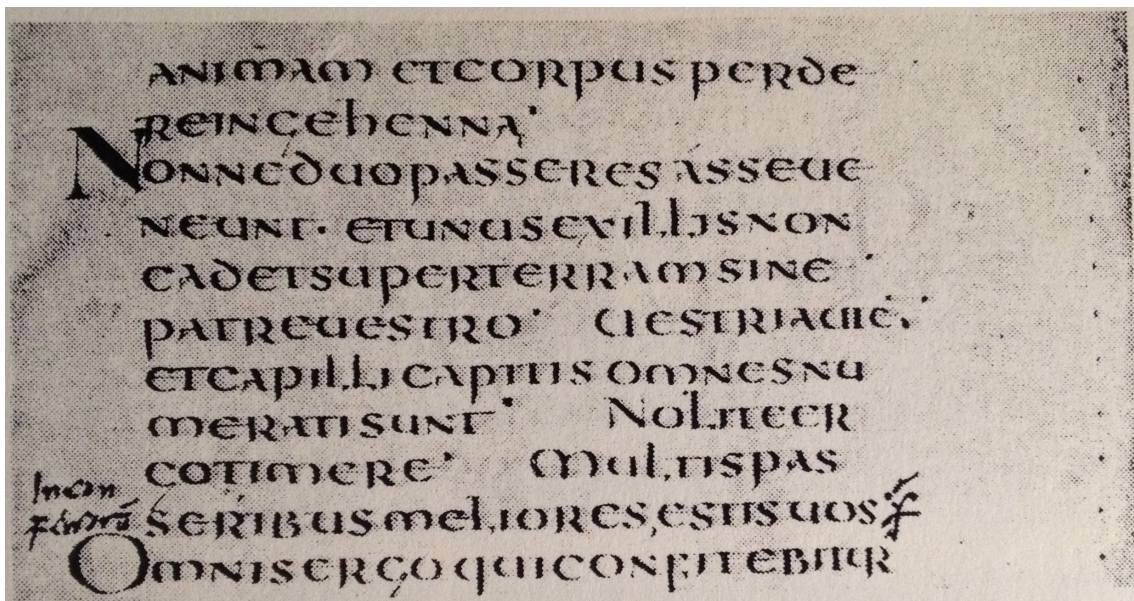 animam etcorpus perde
reingehenna·
Nonneduopasseres asseue
neunt· etunusexillisnon
cadetsuperterramsine
patreuestro· Uestriaute·
etcapilli capitis omnesnu
meratisunt· Noliteer
gotimere· Multispas
seribus meliores estis uos
Omnisergo quiconfitebitur